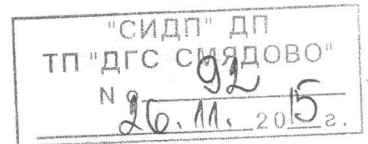 "СИДП" ДП
ТП "ДГС СМЯДОВО"
N 92
26.11. 2015 г.